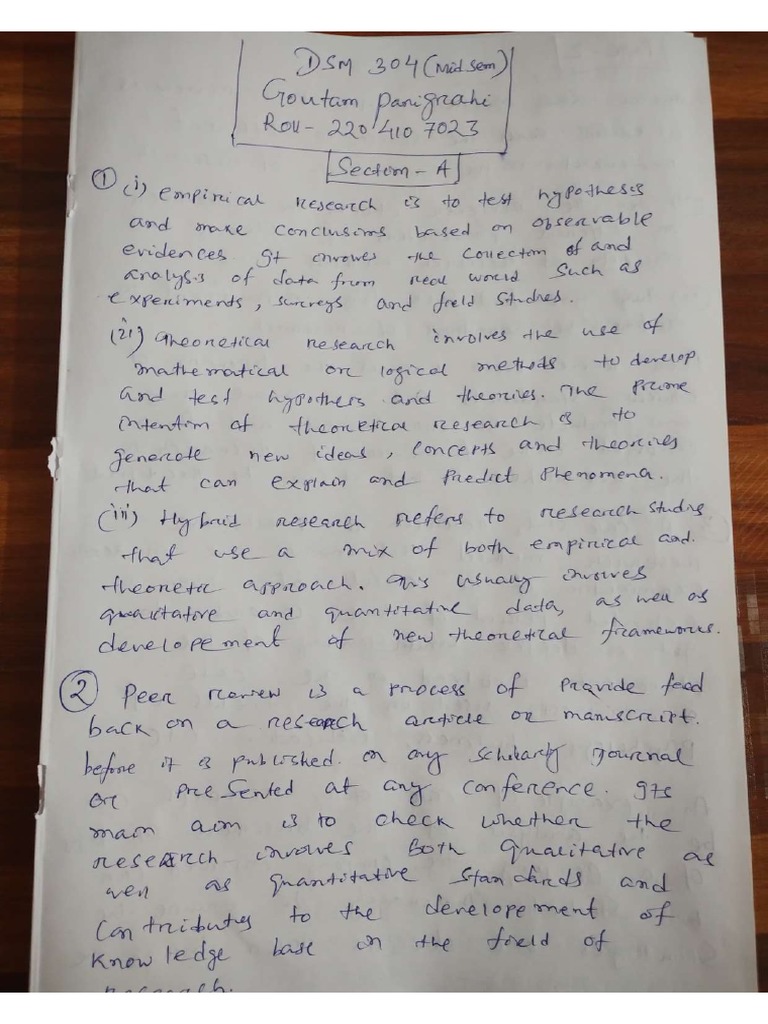 DSM 304 (Mid Sem)
Goutam Panigrahi
Roll - 220 410 7023
Section - A
① (i) empirical research is to test hypothesis
and make conclusions based on observable
evidences It involves the collection of and
analysis of data from real world such as
experiments, surveys and field studies.
(ii) Theoretical research involves the use of
mathematical or logical methods to develop
and test hypothers and theories. The prime
intention of theoretical research is to
generate new ideas, concepts and theories
that can explain and predict phenomena.
(iii) Hybrid research refers to research studies
that use a mix of both empirical and
theoretic approach. This usually involves
qualitative and quantitative data, as well as
developement of new theoretical frameworks.
② Peer review is a process of provide feed
back on a research article or manuscript.
before it is published. on any scholarly journal
or presented at any conference. Its
main aim is to check whether the
research involves both qualitative as
well as quantitative standards and
contributes to the developement of
knowledge base in the field of
research.